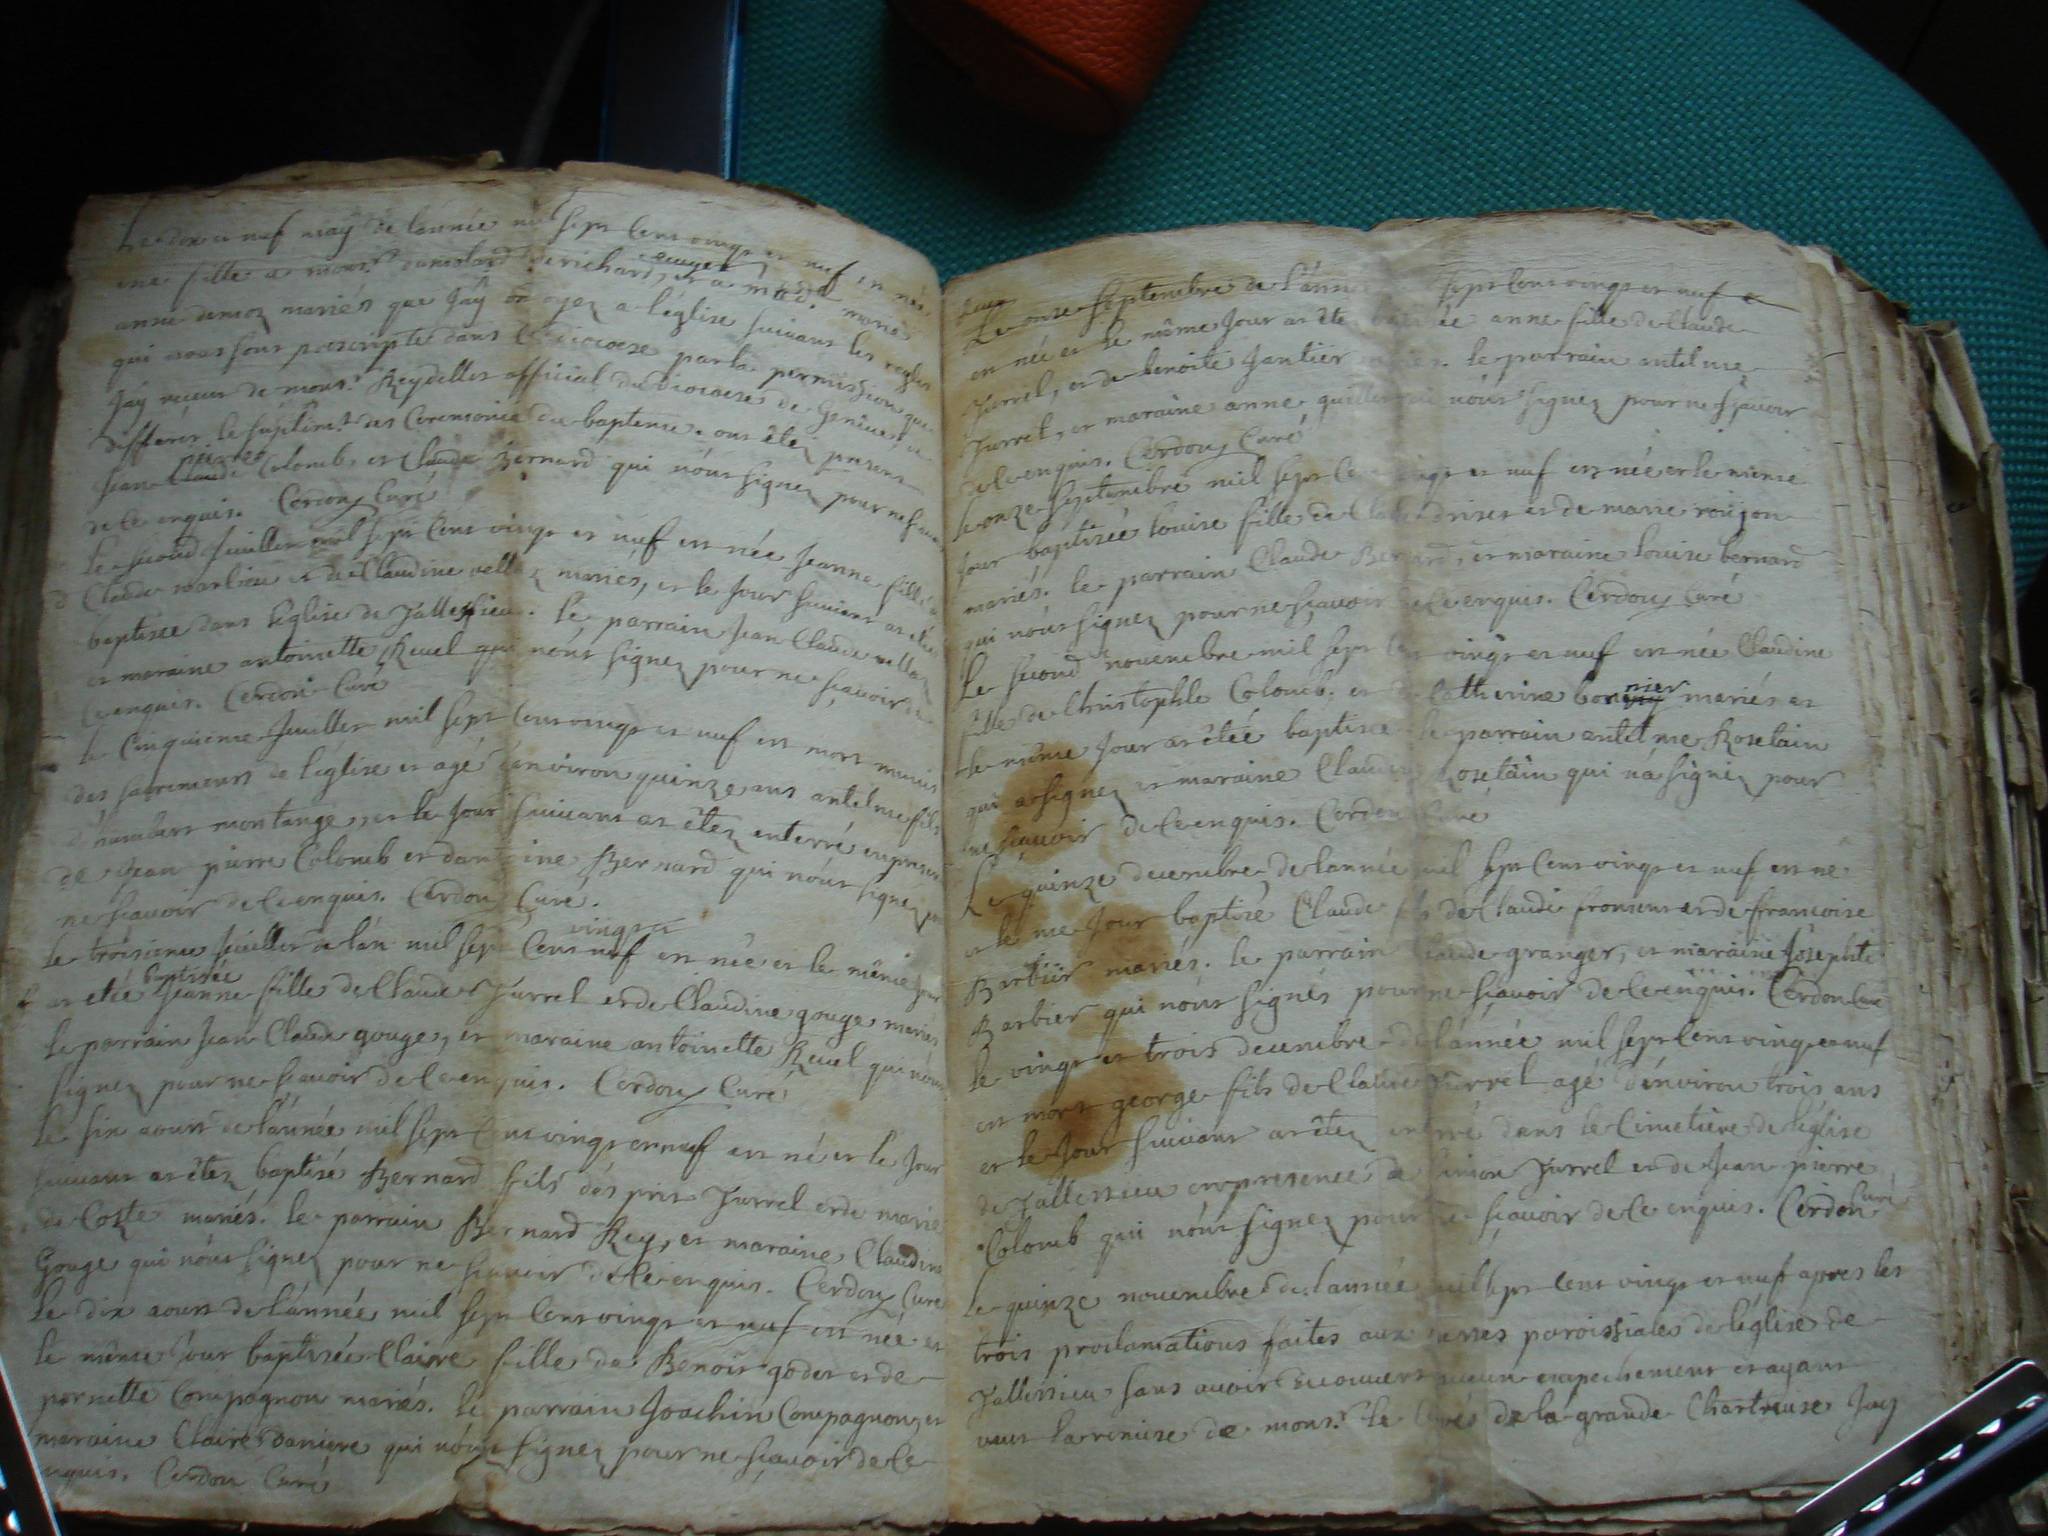 Le dix et neuf may de lannée mil sept Cent vingt et neuf est née
une fille a mons.r damolard de richard, ecuyer et a mad.e marie
anne demoz mariés que Jäy ondoyez a l'église suivant les regles
qui nous sont prescripte dans le diocoese par la permission que
Jäy receue de mons.r Reydellet official du diocoese de Genéve, de
differer le suplém.t des Ceremonies du baptême. ont êtez present
Jean pierre Colomb, et Claude Bernard qui nónt signez pour ne sçavoir
de Ce enquis. Cerdon Curé
Le second Juillet mil sept Cent vingt et neuf est née Jeanne fille de
Claude marlieu et de Claudine vellaz mariés, et le Jour suivant at êtée
baptisée dans l'église de Jallessieu. le parrain Jean Claude vellaz
et maraine antoinette Revel qui nónt signez pour ne sçavoir de
Ce enquis. Cerdon Curé
le Cinquieme Juillet mil sept Cent vingt et neuf est mort munis
des sacrements de l'église et agé d'environ quinze ans antelme fils
d'humbert montange, et le Jour suivant at êtez enterré en presence
de Jean pierre Colomb et d'antoine Bernard qui nónt signez pour
ne sçavoir de Ce enquis. Cerdon Curé.
le troisieme Juillet de lán mil sept Cent vingt et neuf est née et le même Jour
at etée baptisée Jeanne fille de Claude Jurrel et de Claudine gouge mariés
le parrain Jean Claude gouge, et maraine antoinette Revel qui nónt
signez pour ne sçavoir de Ce enquis. Cerdon Curé
Le six aoust de l'année mil sept Cent vingt et neuf est né et le Jour
suivant at êtez baptisé Bernard fils désprit Jurrel et de marie
de Coste mariés. le parrain Bernard Rey, et maraine Claudine
Gouge qui nónt signez pour ne sçavoir de Ce enquis. Cerdon Curé
Le dix aoust de l'année mil sept Cent vingt et neuf est née et
le même Jour baptisée Claire fille de Benoit godet et de
pernette Compagnon mariés. le parrain Joachin Compagnon, et
maraine Claire daniere qui nónt signez pour ne sçavoir de Ce
enquis. Cerdon Curé
Le onze septembre de l'année sept Cent vingt et neuf
est née et le même Jour at êtez baptisée anne fille de Claude
Jurrel, et de benoite Jantiër mariés. le parrain antelme
Jurrel, et maraine anne qui nónt signez pour ne sçavoir
de Ce enquis. Cerdon Curé
le onze septembre mil sept Cent vingt et neuf est née et le même
Jour baptisée Louise fille de Claude et de marie roujon
mariés. le parrain Claude Bernard, et maraine Louise bernard
qui nónt signez pour ne sçavoir de Ce enquis. Cerdon Curé
Le second novembre mil sept Cent vingt et neuf est née Claudine
fille de Christophle Colomb, et de Catherine bonnier mariés et
le même Jour at êtée baptisée le parrain antelme Rosetain
qui a signez et maraine Claudine Rosetain qui na signez pour
ne sçavoir de Ce enquis. Cerdon Curé
Le quinze decembre de l'année mil sept Cent vingt et neuf est né
et le me Jour baptisé Claude fils de Claude froment et de francoise
Barbiër mariés. le parrain Claude granger, et maraine Josephte
Barbier qui nónt signés pour ne sçavoir de Ce enquis. Cerdon Curé
le vingt et trois decembre de l'année mil sept Cent vingt et neuf
est mort george fils de Claude Jurrel agé d'environ trois ans
et le Jour suivant at êtez enterré dans le Cimetiere de l'église
de Jallessieu en presence de simon Jurrel et de Jean pierre
Colomb qui nónt signez pour ne sçavoir de Ce enquis. Cerdon Curé
le quinze novembre de l'année mil sept Cent vingt et neuf apres les
trois proclamations faites aux messes paroissiales de l'église de
Jallessieu sans avoir decouvert aucun empechement et ayant
veut la remise de mons.r le Curé de la grande Chartreuse Jay